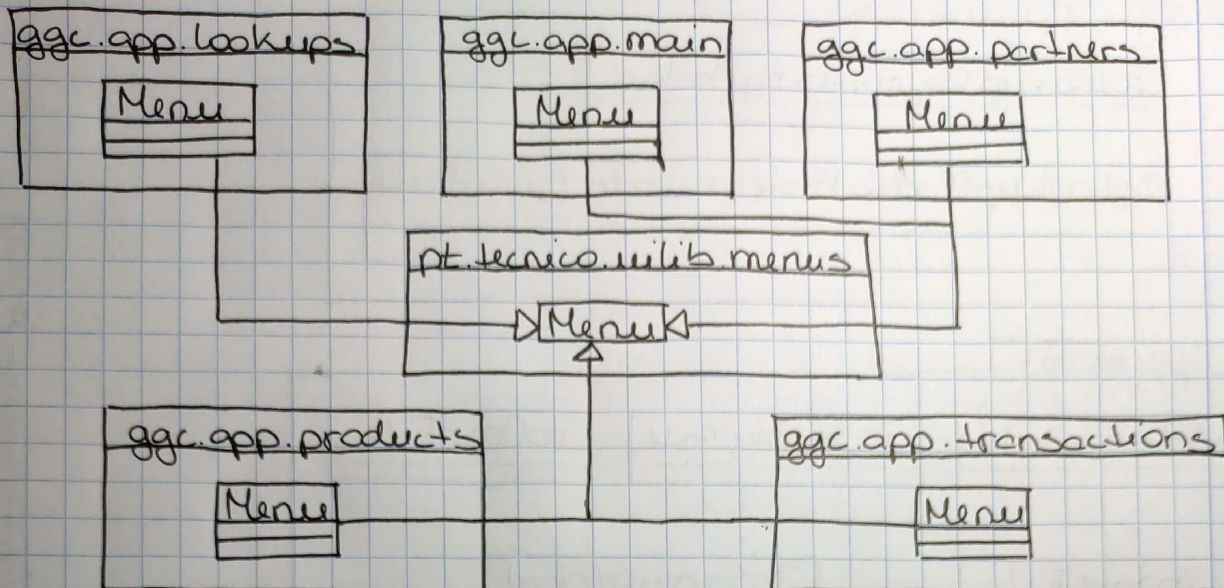 ggc.app.lookups
Menu
ggc.app.main
Menu
ggc.app.partners
Menu
pt.tecnico.uilib.menus
Menu
ggc.app.products
Menu
ggc.app.transactions
Menu